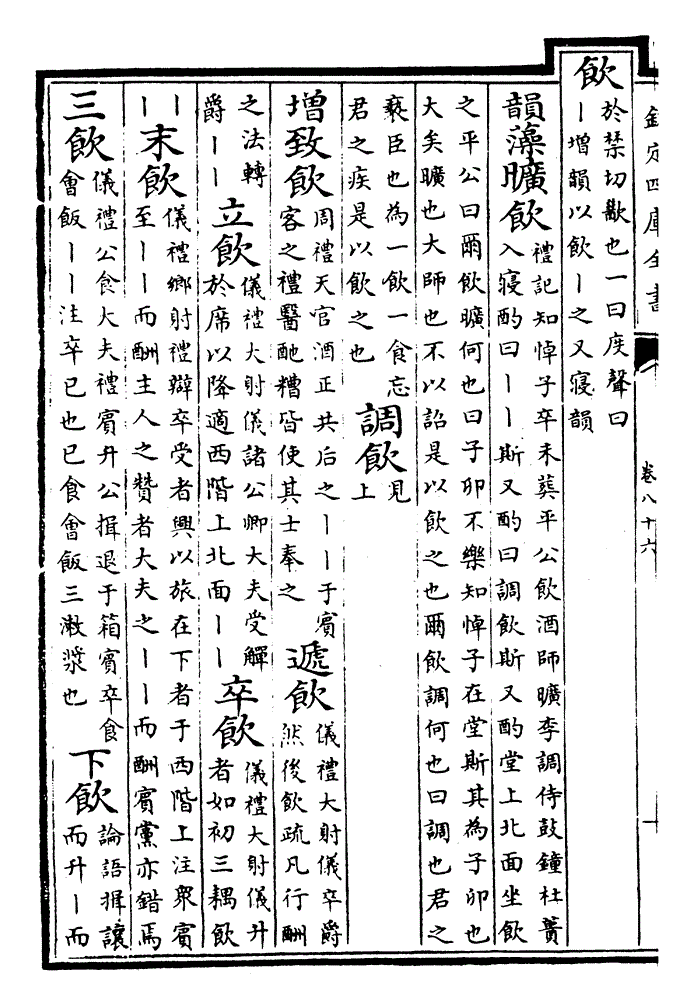 欽定四庫全書
卷八十六
飲
於禁切歠也一曰度聲曰
丨增韻以飲丨之又寢韻
韻藻曠飲
禮記知悼子卒未葬平公飲酒師曠李調侍鼓鐘杜蕢
入寢酌曰丨丨斯又酌曰調飲斯又酌堂上北面坐飲
之平公曰爾飲曠何也曰子卯不樂知悼子在堂斯其為子卯也
大矣曠也大師也不以詔是以飲之也爾飲調何也曰調也君之
褻臣也為一飲一食忘
君之疾是以飲之也
調飲
見
上
增致飲
周禮天官酒正共后之丨丨于賓
客之禮醫酏糟皆使其士奉之
遞飲
儀禮大射儀卒爵
然後飲疏凡行酬
之法轉
爵丨丨
立飲
儀禮大射儀諸公卿大夫受觶
於席以降適西階上北面丨丨
卒飲
儀禮大射儀升
者如初三耦飲
丨
丨
末飲
儀禮鄉射禮辯卒受者興以旅在下者于西階上注眾賓
至丨丨而酬主人之贊者大夫之丨丨而酬賓黨亦錯焉
三飲
儀禮公食大夫禮賓升公揖退于箱賓卒食
會飯丨丨注卒已也已食會飯三漱漿也
下飲
論語揖讓
而升丨而